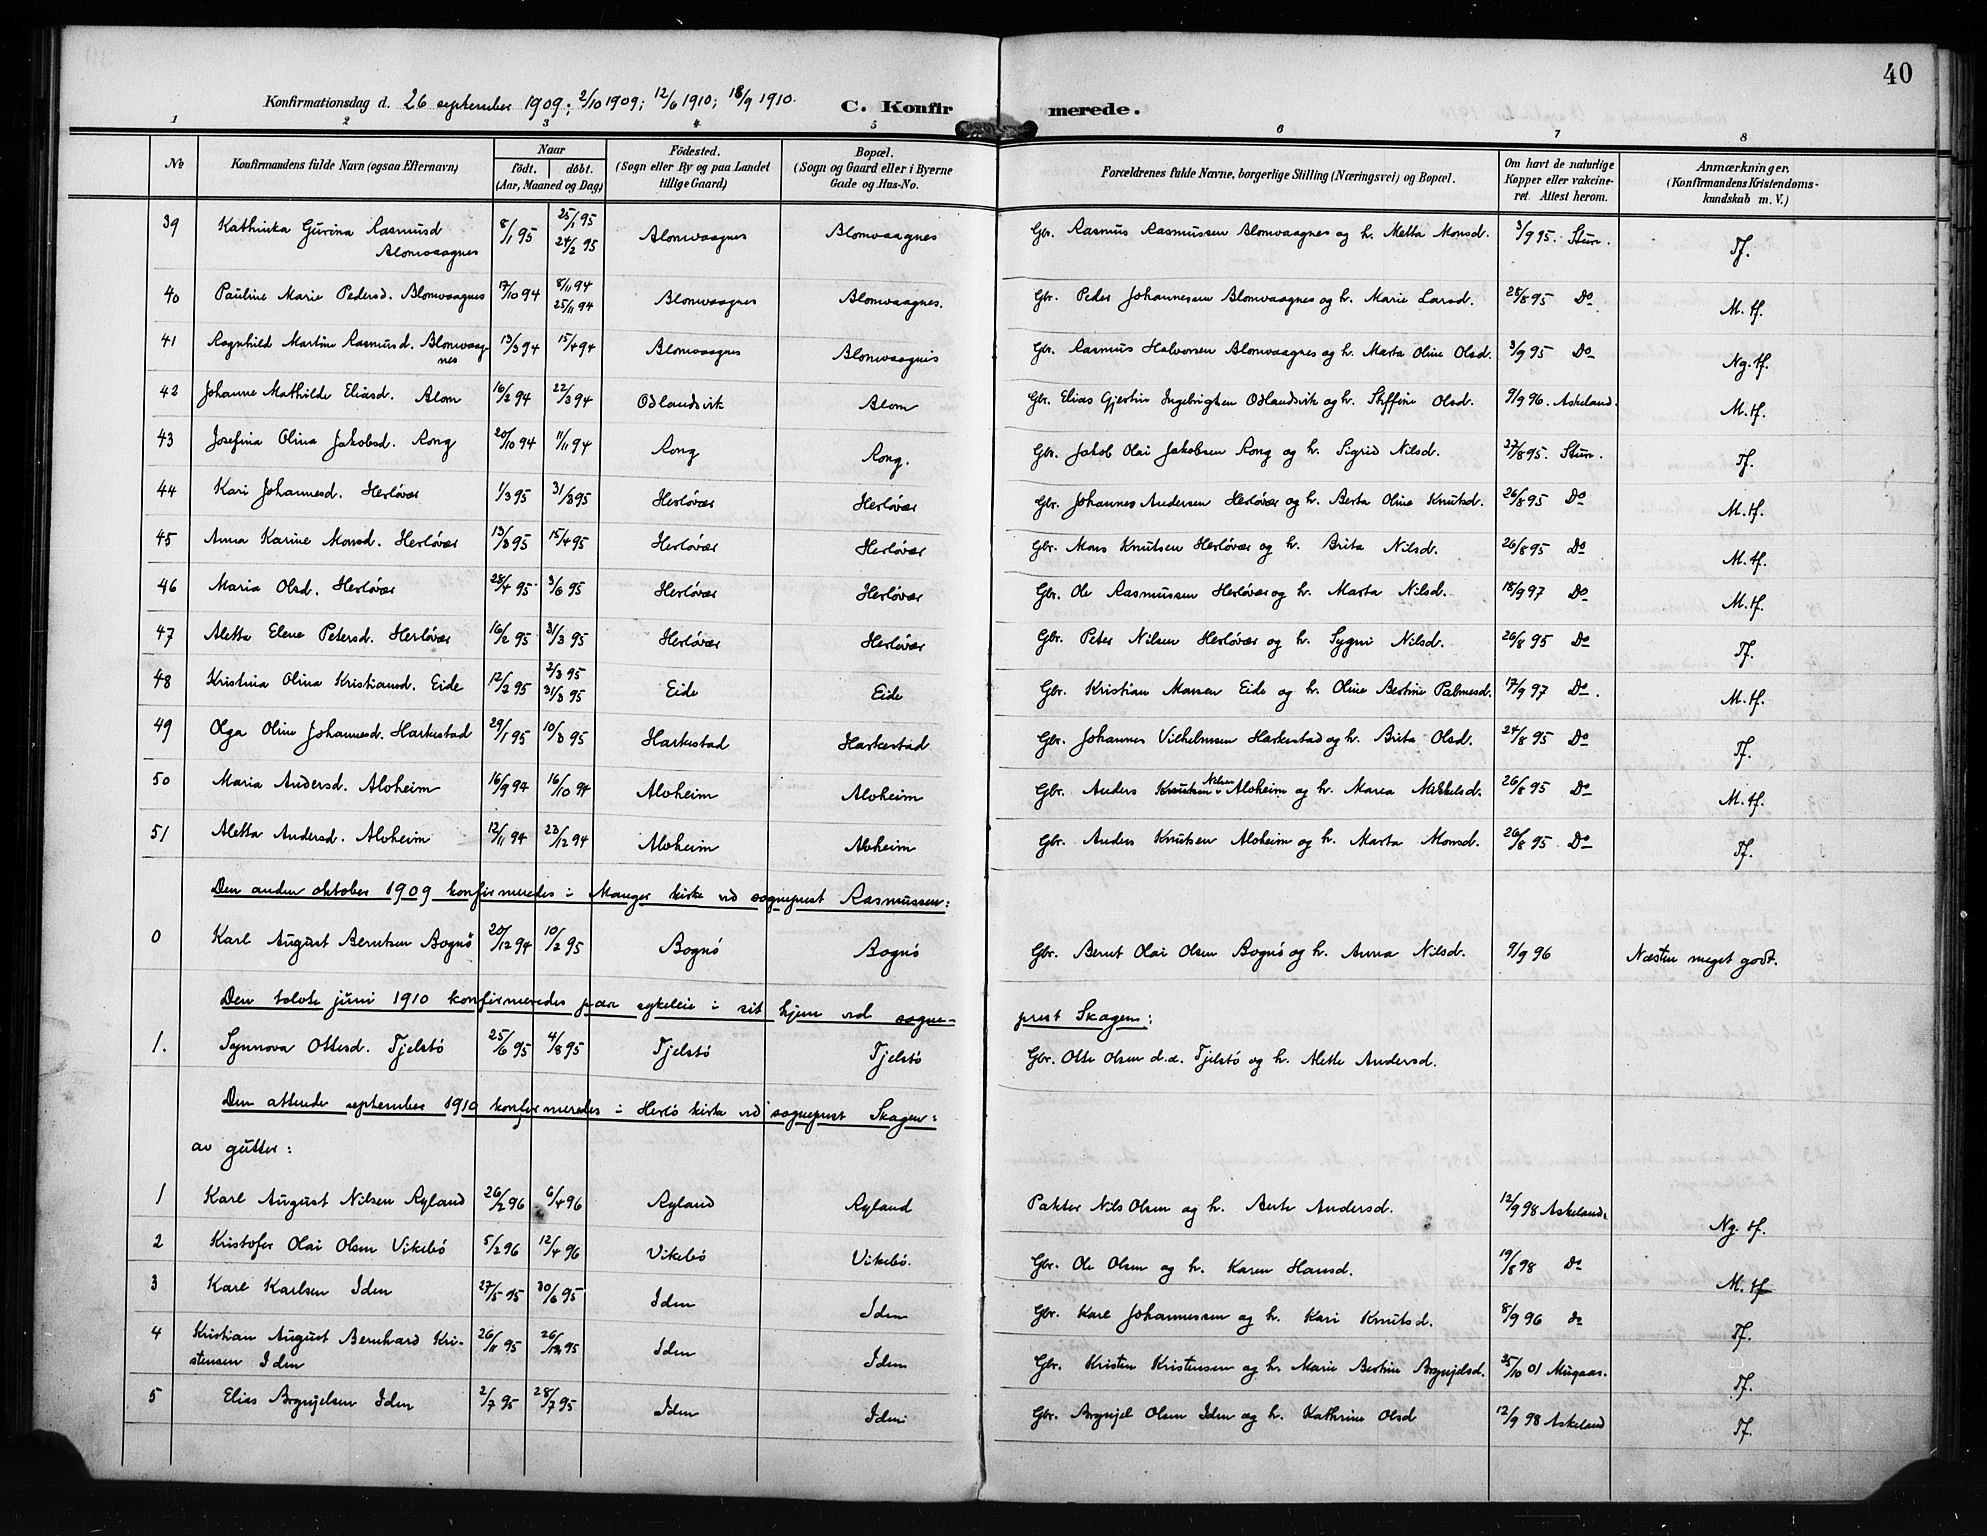 40
Konfirmationsdag d. 26 september 1909; 2/10 1909; 12/6 1910; 18/9 1910. C. Konfirmerede.
1 2 3 4 5 6 7 8
No Konfirmandens fulde Navn (ogsaa Efternavn) Naar födt. döbt. (Aar, Maaned og Dag) Födested. (Sogn eller By og paa Landet tillige Gaard) Bopæl. (Sogn og Gaard eller i Byerne Gade og Hus-No. Forældrenes fulde Navne, borgerlige Stilling (Næringsvei) og Bopæl. Om havt de naturlige Kopper eller vakcineret Attest herom. Anmærkninger. (Konfirmandens Kristendomskundskab m. V.)
39 Kathinka Gurina Rasmusd Blomvaagnes 8/1 95 25/1 95 24/2 95 Blomvaagnes Blomvaagnes Gbr. Rasmus Rasmussen Blomvaagnes og h. Metta Monsd. 3/9 95. Sture. Tf.
40 Pauline Marie Pedersd. Blomvaagnes 17/10 94 8/11 94 25/11 94 Blomvaagnes Blomvaagnes. Gbr. Peder Johannesen Blomvaagnes og h. Marie Larsd. 28/8 95 Do M. tf.
41 Ragnhild Martine Rasmusd. Blomvaagnes 13/3 94 15/4 94 Blomvaagnes Blomvaagnes Gbr. Rasmus Halvorsen Blomvaagnes og h. Marta Oline Olsd. 3/9 95 Do Ng. tf.
42 Johanne Mathilde Eliasd. Blom 16/2 94 22/3 94 Odlandsvik Blom Gbr. Elias Gjertin Ingebrigtsen Odlandsvik og h. Steffine Olsd. 9/9 96. Askeland. M. tf.
43 Josefina Olina Jakobsd. Rong 20/10 94 11/11 94 Rong Rong. Gbr. Jakob Olai Jakobsen Rong og h. Sigrid Nilsd. 27/8 95. Sture. Tf.
44 Kari Johannesd. Herlövær 1/3 95 31/3 95 Herlövær Herlövær Gbr. Johannes Andersen Herlövær og h. Berta Oline Knutsd. 26/8 95 Do M. tf.
45 Anna Karine Monsd. Herlövær 13/3 95 15/4 95 Herlövær Herlövær Gbr. Mons Knutsen Herlövær og h. Brita Nilsd. 26/8 95 Do M. tf.
46 Maria Olsd. Herlövær 28/4 95 3/6 95 Herlövær Herlövær Gbr. Ole Rasmussen Herlövær og h. Marta Nilsd. 18/9 97 Do M. tf.
47 Aletta Elene Petersd. Herlövær 16/2 95 31/3 95 Herlövær Herlövær Gbr. Peter Nilsen Herlövær og h. Sygni Nilsd. 26/8 95 Do Tf.
48 Kristina Olina Kristiansd. Eide 12/2 95 2/3 95 31/3 95 Eide Eide Gbr. Kristian Mansen Eide og h. Oline Bertine Palmesd. 17/9 97 Do. M. tf.
49 Olga Oline Johannesd. Harkestad 29/1 95 10/3 95 Harkestad Harkestad Gbr. Johannes Vilhelmsen Harkestad og h. Brita Olsd. 24/8 95 Do Tf.
50 Maria Andersd. Alvheim 16/9 94 16/10 94 Alvheim Alvheim Gbr. Anders Knutsen Nilsen Alvheim og h. Maria Mikkelsd. 26/8 95 Do M. tf.
51 Aletta Andersd. Alvheim 12/11 94 23/12 94 Alvheim Alvheim Gbr. Anders Knutsen Alvheim og h. Marta Monsd. 26/8 95 Do Tf.
Den anden oktober 1909 konfirmeredes i Manger kirke ved sogneprest Rasmussen:
0 Karl August Berntsen Bognö 20/12 94 10/2 95 Bognö Bognö Gbr. Bernt Olai Olsen Bognö og h. Anna Nilsd. 9/9 96 Næsten meget godt.
Den tolvte juni 1910 konfirmeredes paa sykeleie i sit hjem ved sogneprest Skagen:
1. Synnova Ottesd. Tjelstö 25/6 95 4/8 95 Tjelstö Tjelstö Gbr. Otte Olsen d.æ. Tjelstö og h. Alette Andersd.
Den attende september 1910 konfirmeredes i Herlö kirke ved sogneprest Skagen:
av gutter:
1 Karl August Nilsen Ryland 26/2 96 6/4 96 Ryland Ryland Pakter Nils Olsen og h. Berte Andersd. 12/9 98 Askeland. Ng. tf.
2 Kristofer Olai Olsen Vikebö 5/2 96 12/4 96 Vikebö Vikebö. Gbr. Ole Olsen og h. Karen Hansd. 19/8 98 Do M. tf
3 Karl Karlsen Iden 27/5 95 30/6 95 Iden Iden Gbr. Karl Johannessen og h. Kari Knutsd. 8/9 96 do Tf.
4 Kristian August Bernhard Kristensen Iden 26/11 95 26/12 95 Iden Iden Gbr. Kristen Kristensen og h. Marie Bertine Brynjelsd. 25/10 01 Mugaas. Tf.
5 Elias Brynjelsen Iden 2/7 95 28/7 95 Iden Iden Gbr. Brynjel Olsen Iden og h. Kathrine Olsd 12/9 98 Askeland Tf.